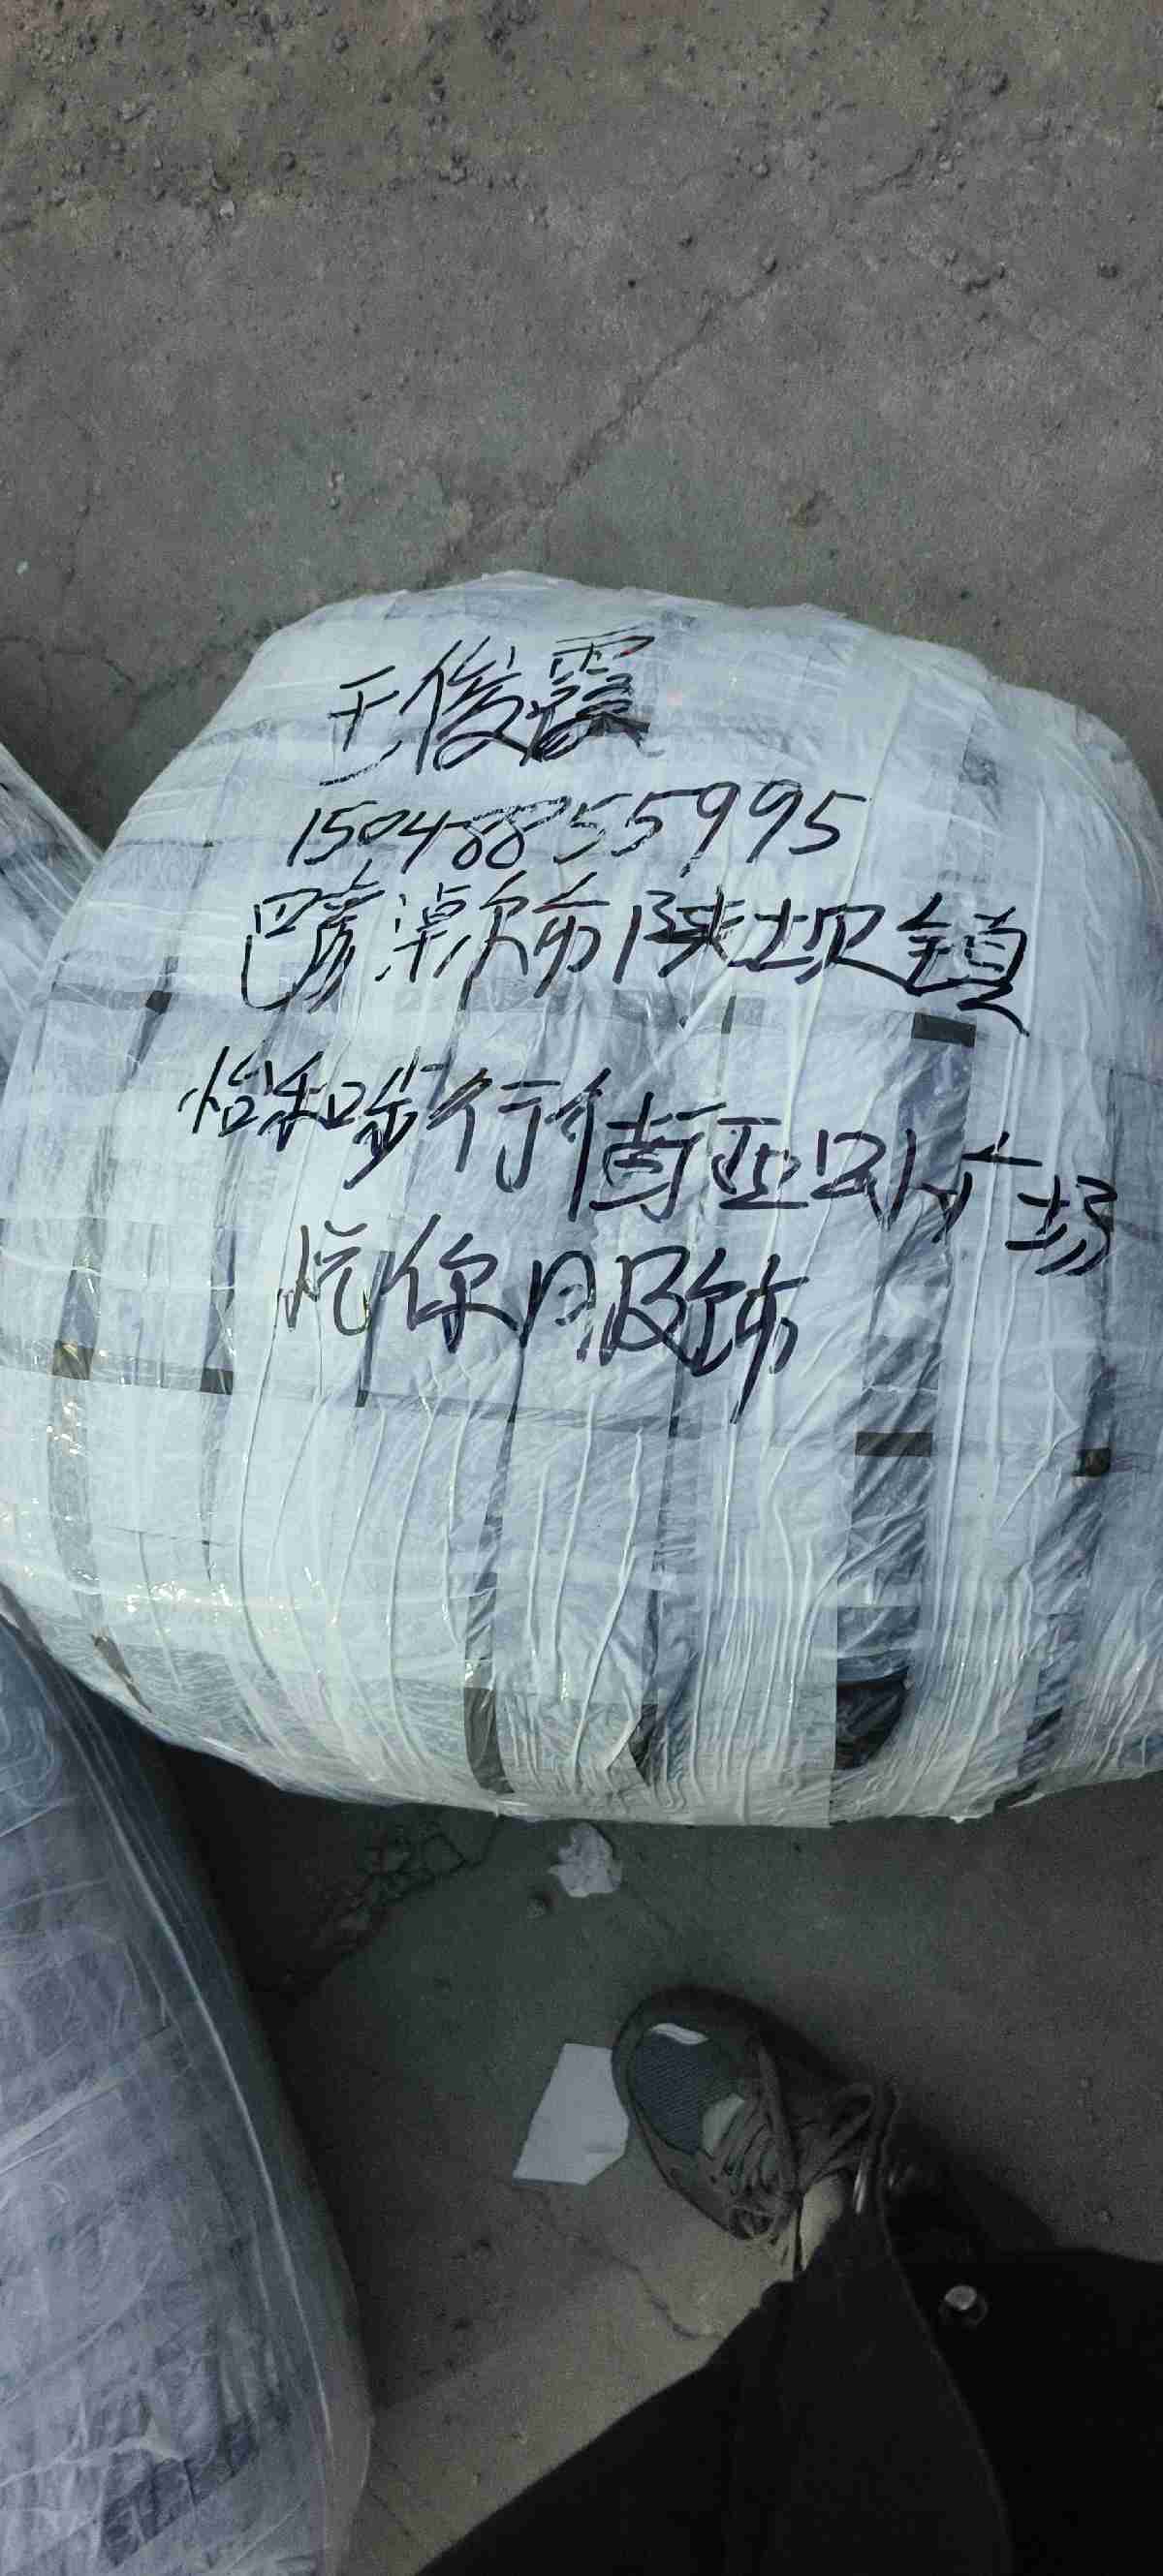 王俊霞
15048855995
巴彦淖尔市陕坝镇
怡和步行街亚欧广场
悦你服饰